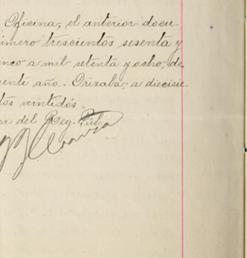 Oficina, el anterior docu
mero trescientos sesenta y
nco a mil setenta y ocho, de
ente año. Orizaba, a diecisie
tos veintidós.
r del Reg. Púb.